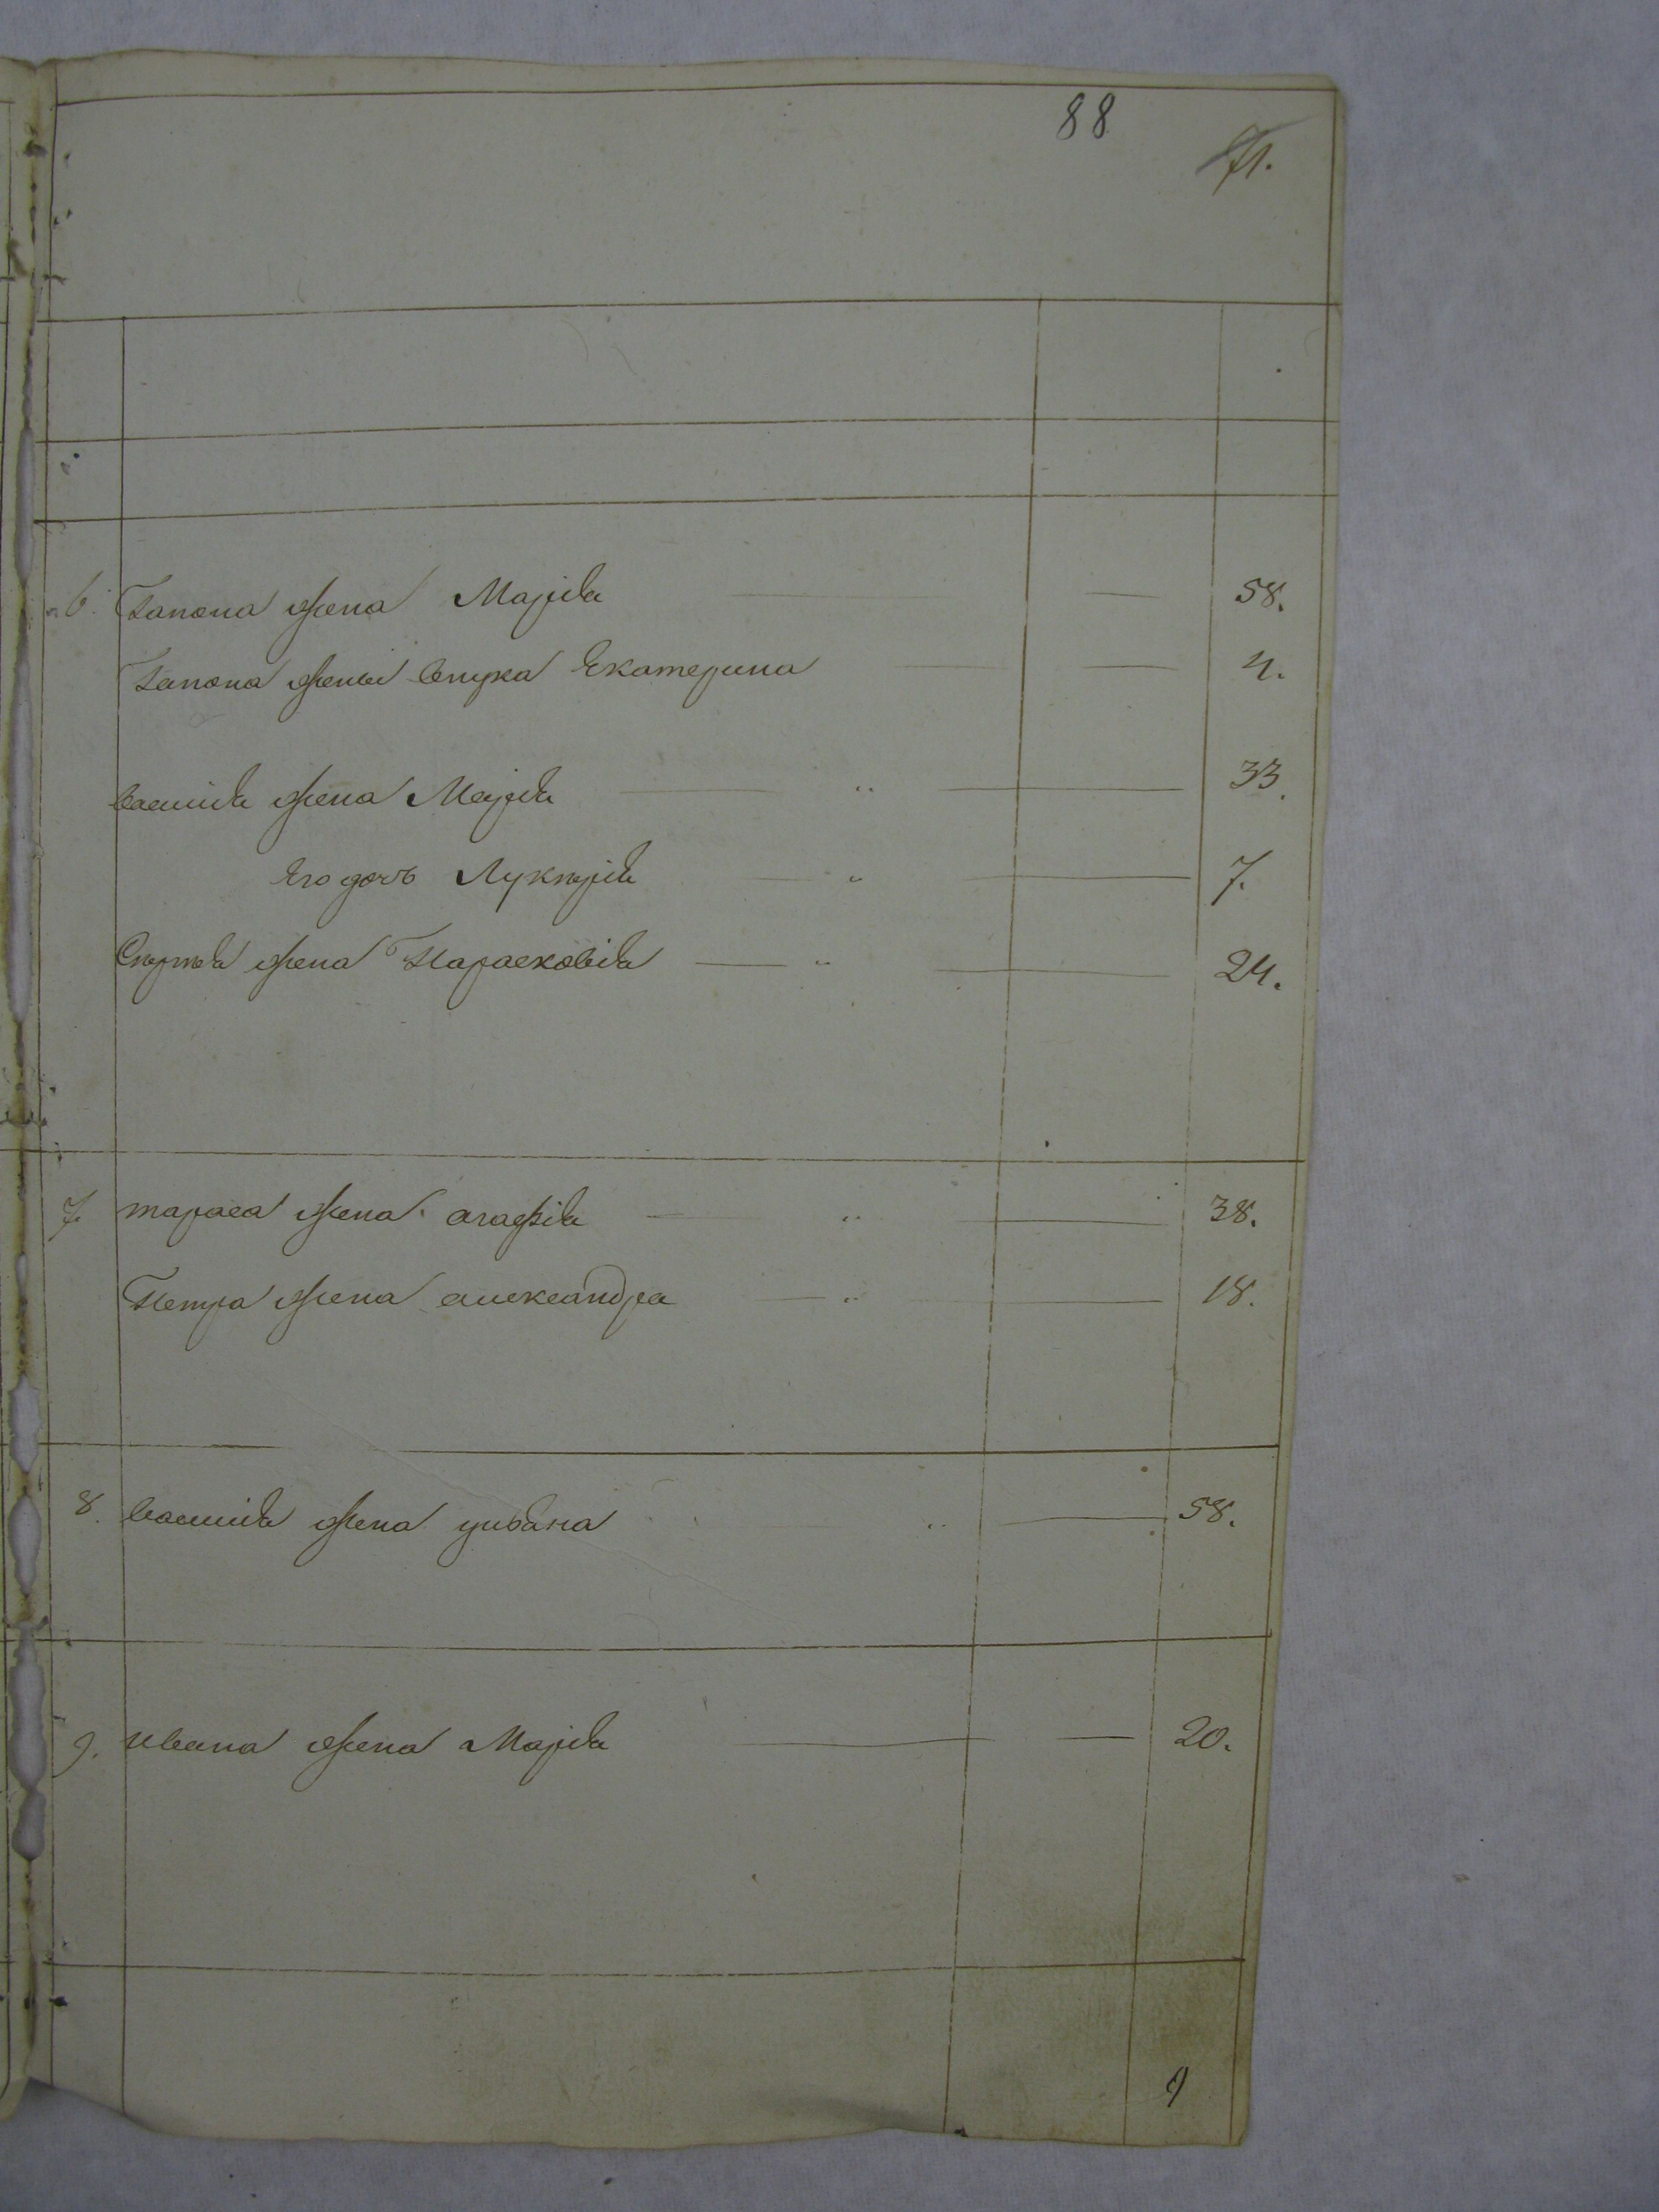 88
71.
6. Гапона жена Марія 58.
Гапона жены внука Екатерина 4.
василія жена Марія 33.
Его дочь Лукерія 7.
Сергея жена Парасковія 24.
7. тараса жена агафія 38.
Петра жена александра 18.
8. василія жена уліана 58.
9. ивана жена Марія 20.
9